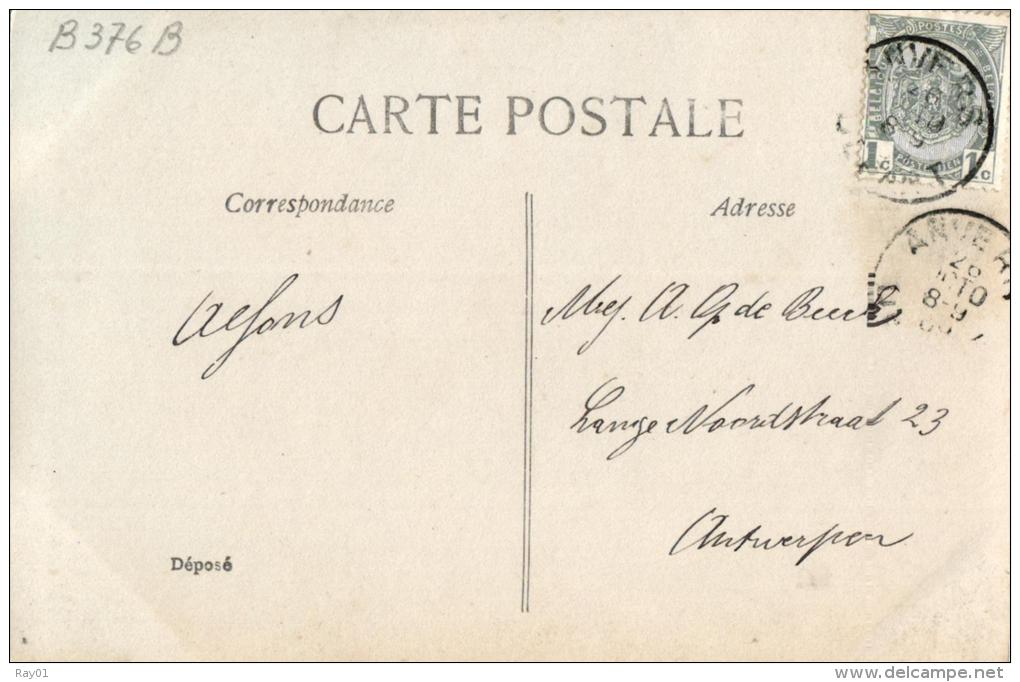 B 376 B
POSTES
BELGIQUE
1c 1c
ANVERS
CARTE POSTALE
ANVERS
28
8-9
Correspondance
Adresse
Alfons
Mej. A. De Beuck
Lange Noordstraat 23
Antwerpen
Déposé
Ray01
www.delcampe.net